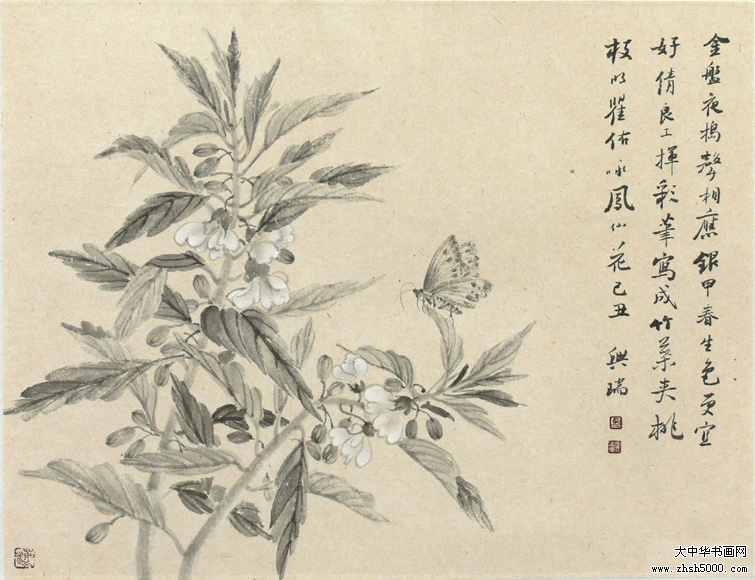 金盤夜搗聲相應銀甲春生色更宜
好倩良工揮彩筆寫成竹葉夾桃
枝明瞿佑咏鳳仙花己丑 興瑞
大中华书画网
www.zhsh5000.com